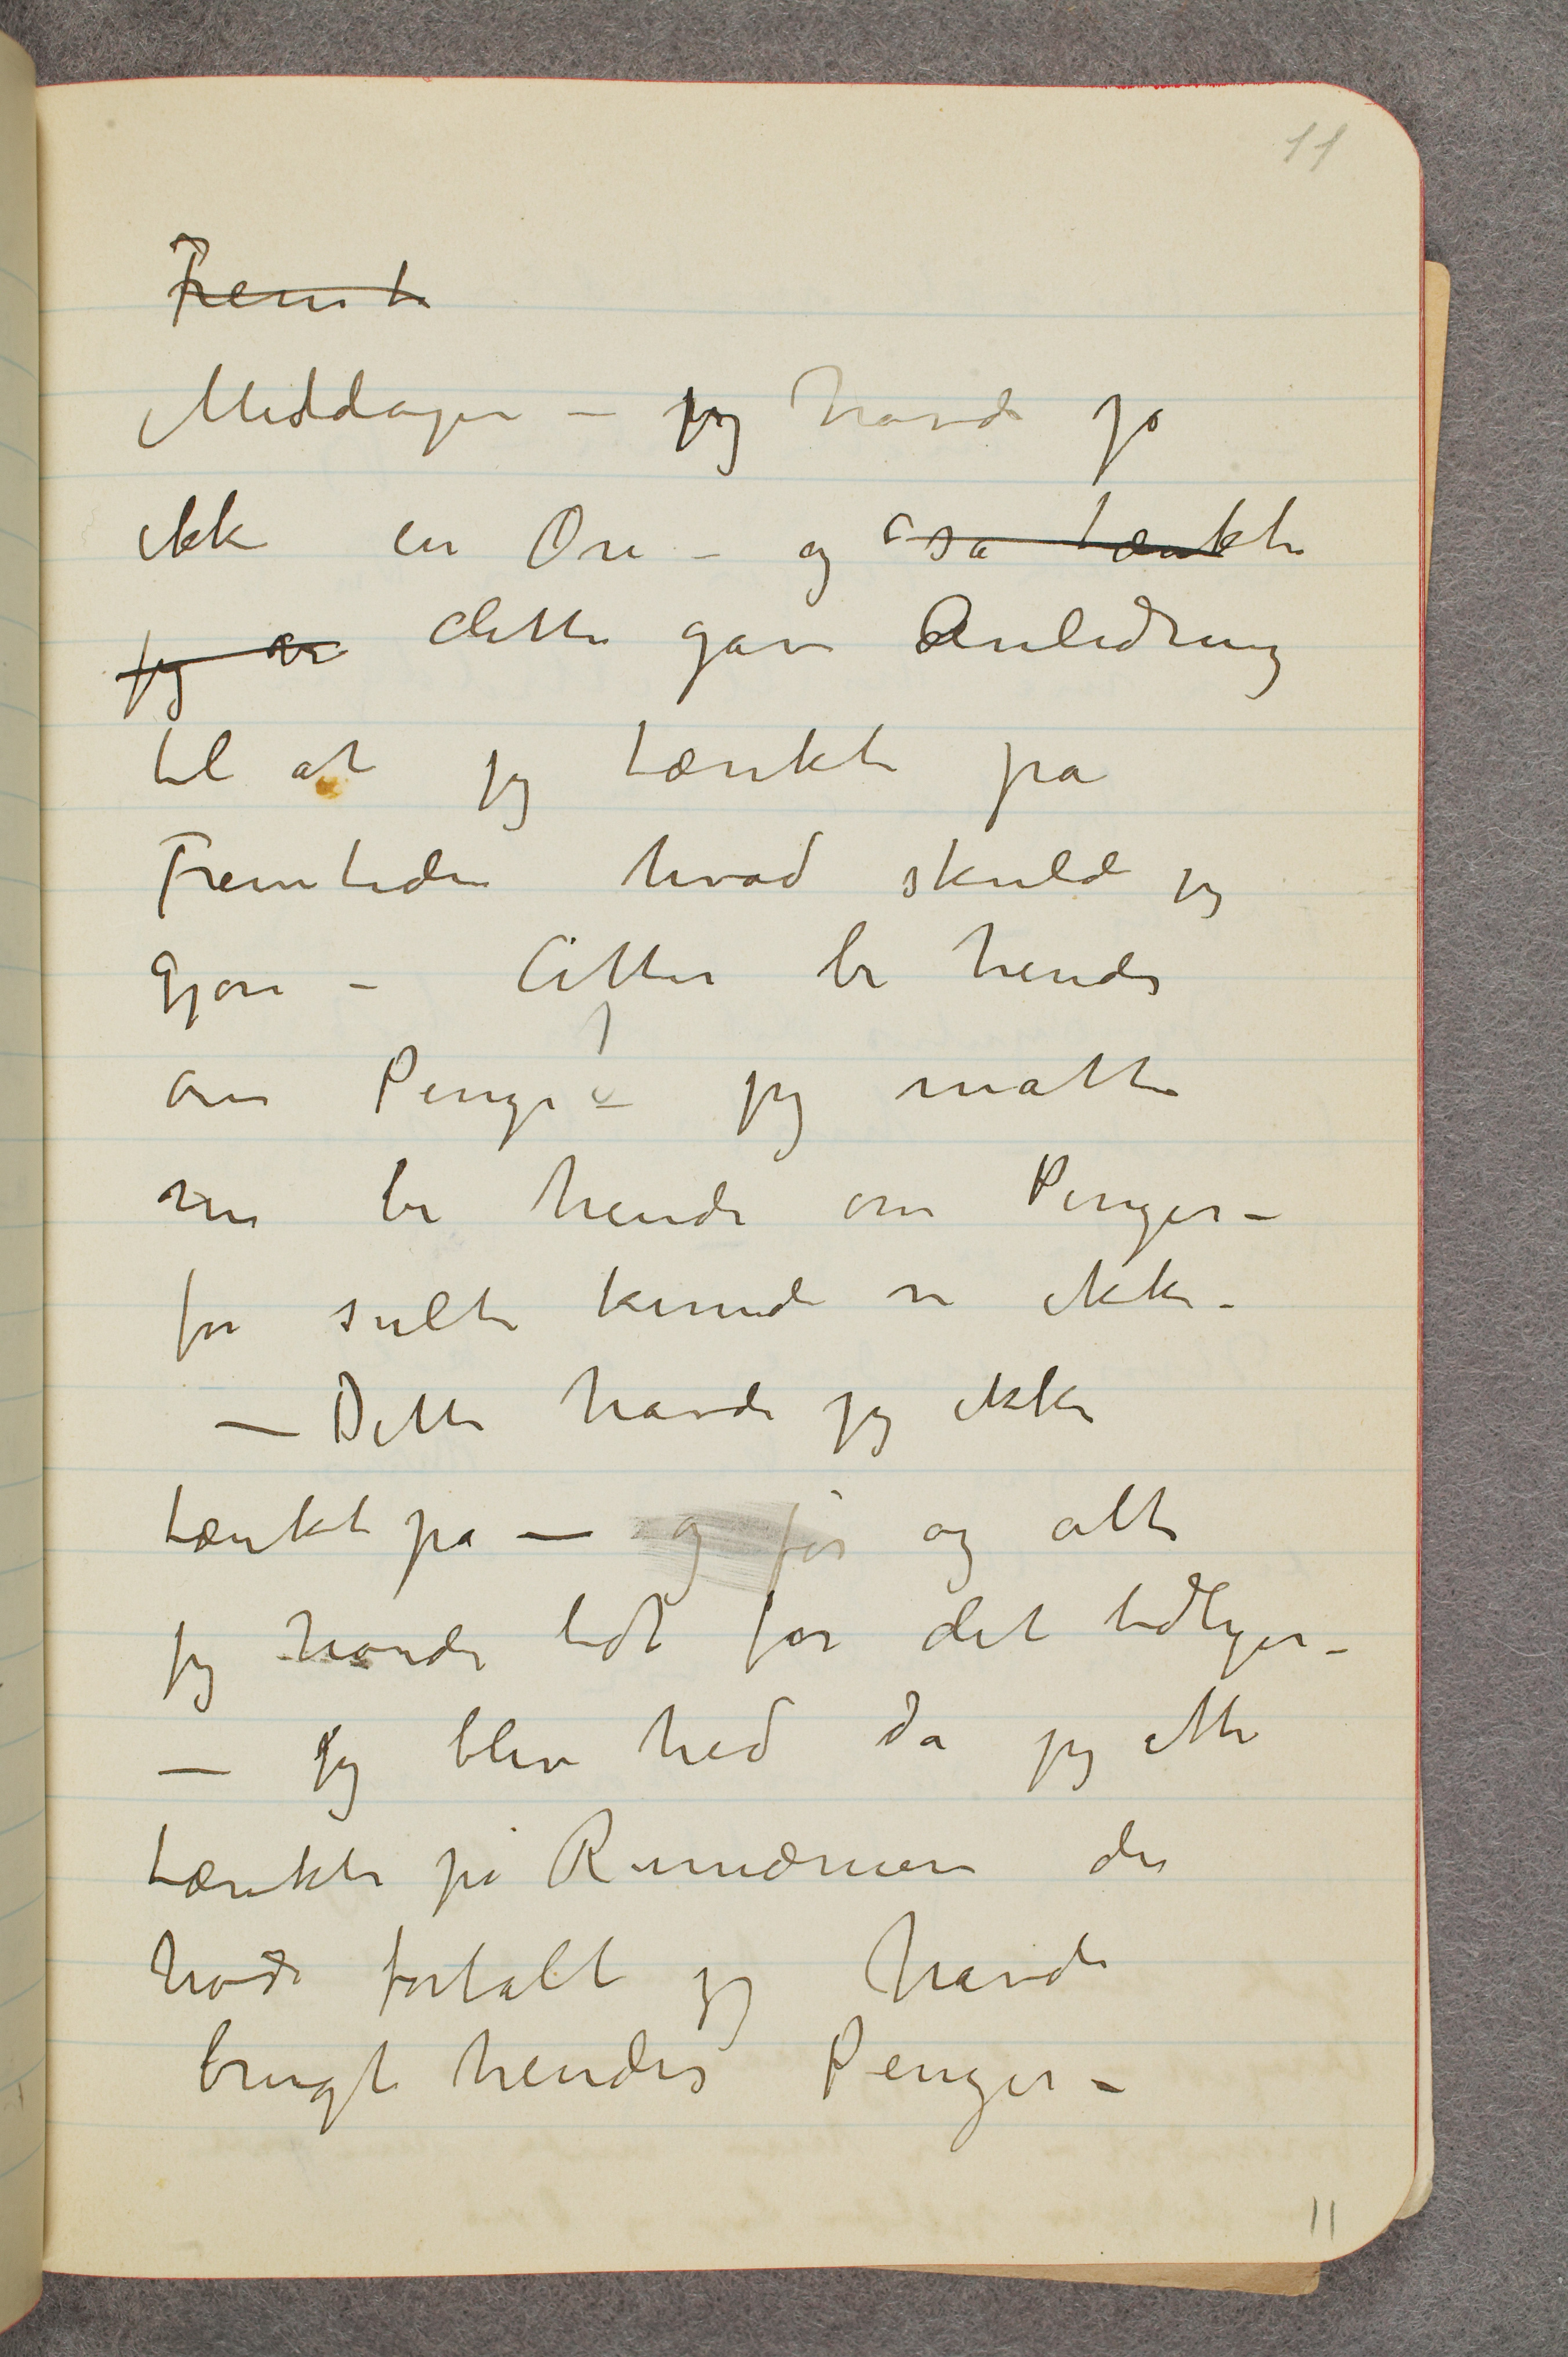 11
Fremt
Middagen – jeg havde jo
ikke en Øre – og så tænkte
jeg vi dette gav Anledning
til at jeg tænkte på
Fremtiden hvad skulde jeg
gjøre – Atter be hende
om Penge – jeg måtte
nu be hende om Penger –
for sulte kunde vi ikke –
– Dette havde jeg ikke
tænkt på – og før og alt
jeg havde lidt for det tidligere –
– jeg blev hed da jeg atter
tænkte på Rumæneren der
havde fortalt jeg havde
brugt hendes Penger –
11